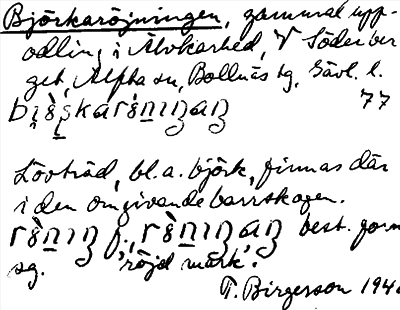 Björkaröjningen, gammal upp-
odling i Älvkarhed, V Söderber
get, Alfta sn, Bollnäs tg, Gävl. l.
77
Lövträd, bl.a. björk, finnas där
i den omgivande barrskogen.
best. form
sg. 'röjd mark'.
T. Birgerson 194